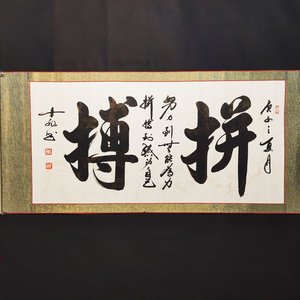 庚子之夏月
拼
努力到无能为力
拼搏到感动自己
搏